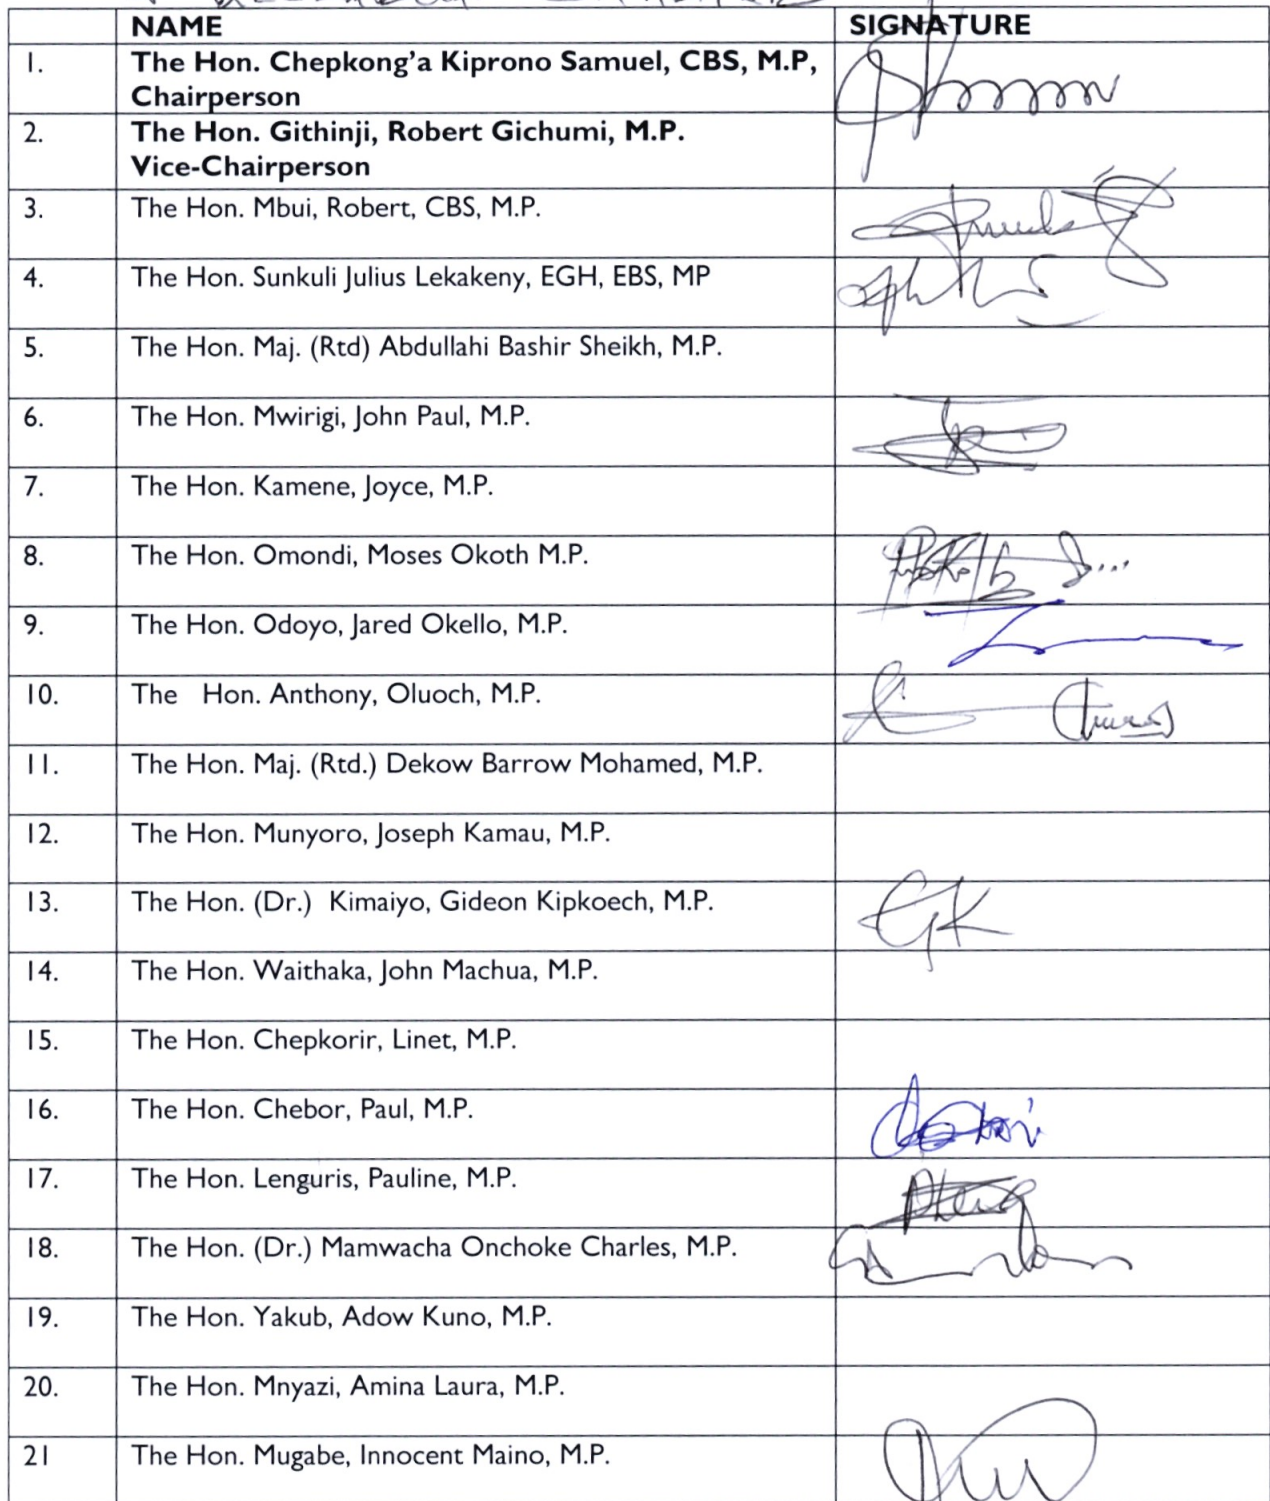 NAME SIGNATURE
1. The Hon. Chepkong'a Kiprono Samuel, CBS, M.P,
Chairperson
2. The Hon. Githinji, Robert Gichumi, M.P.
Vice-Chairperson
3. The Hon. Mbui, Robert, CBS, M.P.
4. The Hon. Sunkuli Julius Lekakeny, EGH, EBS, MP
5. The Hon. Maj. (Rtd) Abdullahi Bashir Sheikh, M.P.
6. The Hon. Mwirigi, John Paul, M.P.
7. The Hon. Kamene, Joyce, M.P.
8. The Hon. Omondi, Moses Okoth M.P.
9. The Hon. Odoyo, Jared Okello, M.P.
10. The Hon. Anthony, Oluoch, M.P.
11. The Hon. Maj. (Rtd.) Dekow Barrow Mohamed, M.P.
12. The Hon. Munyoro, Joseph Kamau, M.P.
13. The Hon. (Dr.) Kimaiyo, Gideon Kipkoech, M.P. GK
14. The Hon. Waithaka, John Machua, M.P.
15. The Hon. Chepkorir, Linet, M.P.
16. The Hon. Chebor, Paul, M.P.
17. The Hon. Lenguris, Pauline, M.P.
18. The Hon. (Dr.) Mamwacha Onchoke Charles, M.P.
19. The Hon. Yakub, Adow Kuno, M.P.
20. The Hon. Mnyazi, Amina Laura, M.P.
21 The Hon. Mugabe, Innocent Maino, M.P.